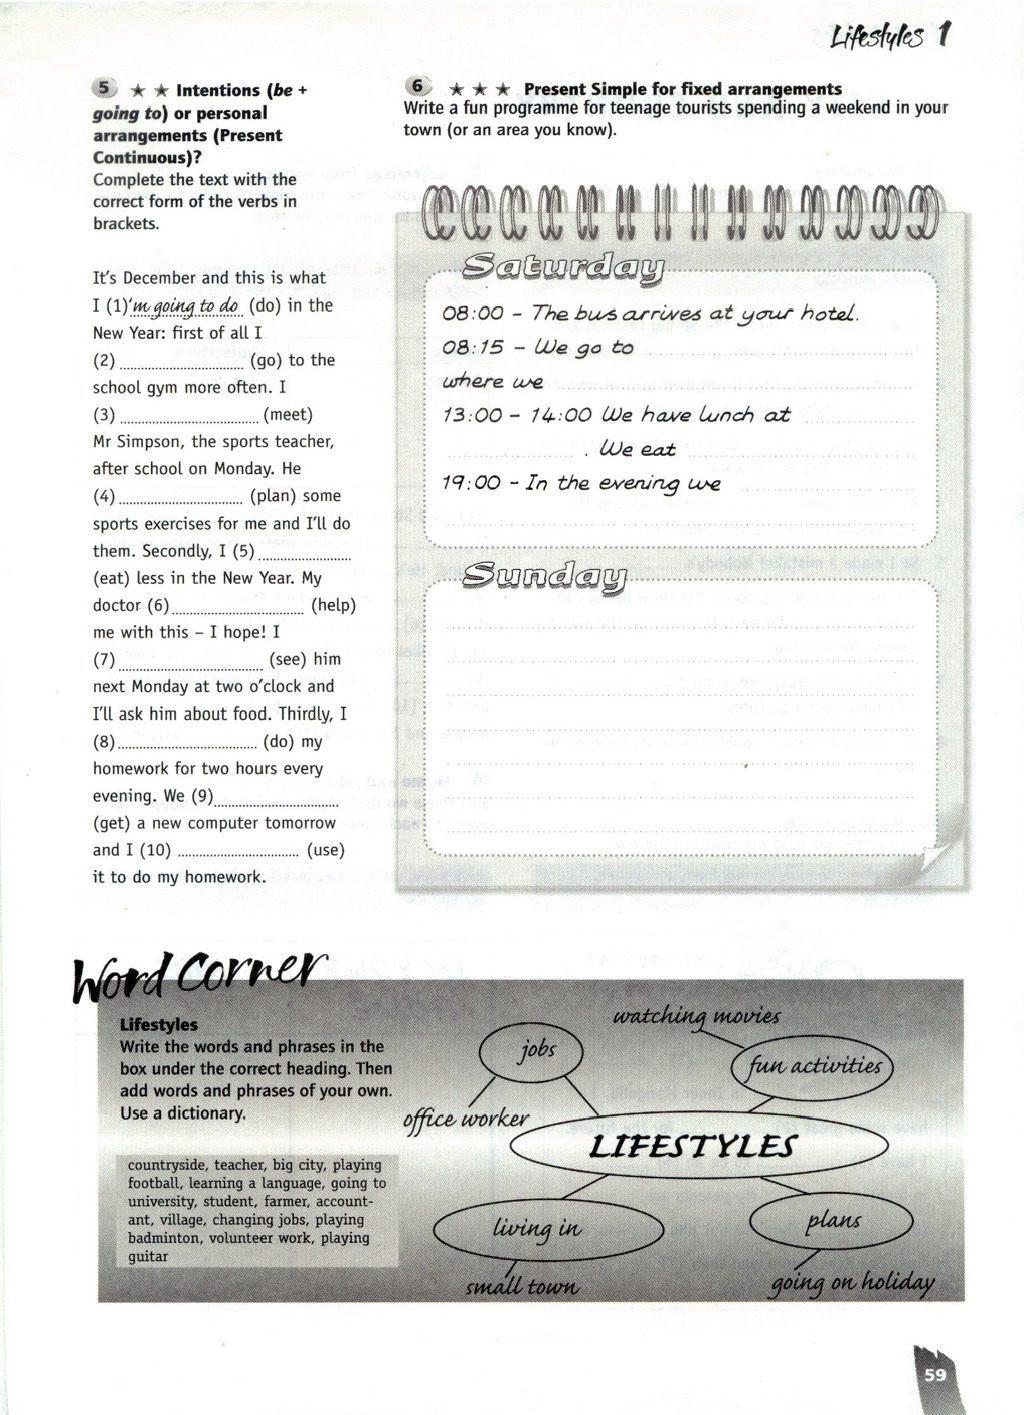 Lifestyles 1
5 ★ ★ Intentions (be +
going to) or personal
arrangements (Present
Continuous)?
Complete the text with the
correct form of the verbs in
brackets.
It's December and this is what
I (1)'m going to do (do) in the
New Year: first of all I
(2) ............................... (go) to the
school gym more often. I
(3) ................................... (meet)
Mr Simpson, the sports teacher,
after school on Monday. He
(4) ............................... (plan) some
sports exercises for me and I'll do
them. Secondly, I (5) .......................
(eat) less in the New Year. My
doctor (6) ................................. (help)
me with this – I hope! I
(7) .................................... (see) him
next Monday at two o'clock and
I'll ask him about food. Thirdly, I
(8) ................................... (do) my
homework for two hours every
evening. We (9) ...............................
(get) a new computer tomorrow
and I (10) .............................. (use)
it to do my homework.
6 ★ ★ ★ Present Simple for fixed arrangements
Write a fun programme for teenage tourists spending a weekend in your
town (or an area you know).
Saturday
08:00 - The bus arrives at your hotel.
08:15 - We go to
where we
13:00 - 14:00 We have lunch at
. We eat
19:00 - In the evening we
Sunday
Word Corner
Lifestyles
Write the words and phrases in the
box under the correct heading. Then
add words and phrases of your own.
Use a dictionary.
countryside, teacher, big city, playing
football, learning a language, going to
university, student, farmer, account-
ant, village, changing jobs, playing
badminton, volunteer work, playing
guitar
watching movies
jobs
fun activities
office worker
LIFESTYLES
living in
plans
small town
going on holiday
59